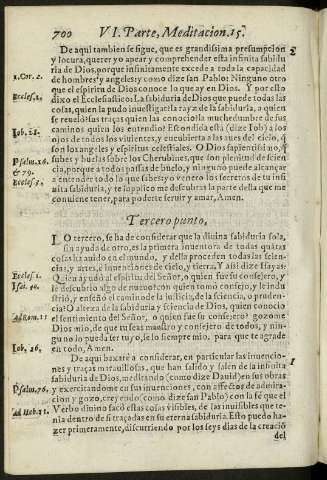 700 VI. Parte, Meditacion. 15.
De aqui tambien se sigue, que es grandissima presumpcion
y locura, querer yo apear y comprehender esta infinita sabidu
ria de Dios, porque infinitamente excede a toda la capacidad
1.Cor. 2.
de hombres y angeles: y como dize san Pablo: Ninguno otro
que el espiritu de Dios conoce lo que ay en Dios. Y por esto
Eccles. 1.
dixo el Ecclesiastico: La sabiduria de Dios que puede todas las
cosas, quien la pudo inuestigar: la rayz de la sabiduria, a quien
se reueló: sus traças quien las conocio: la muchedumbre de sus
caminos quien los entendio? Escondida està (dize Iob) a los
Iob, 28.
ojos de todos los viuientes, y encubierta a las aues del cielo, q̃
son los angeles y espiritus celestiales. O Dios sapientissimo, q̃
Psalm.
& 79.
subes y buelas sobre los Cherubines, que son plenitud de scien
cia, porque a todos passas de buelo, y ninguno puede alcançar
Eccles.
a entender todo lo que sabes: yo venero los secretos de tu infi
nita sabiduria, y te suplico me descubras la parte della que me
conuiene tener, para poderte seruir y amar, Amen.
Tercero punto,
LO tercero, se ha de considerar que la diuina sabiduria sola,
sin ayuda de otro, es la primera inuentora de todas quãtas
cosas ha auido en el mundo, y della proceden todas las scien
cias, y artes, e inuenciones de cielo, y tierra, Y assi dize Isayas:
Eccles. 1.
Quien ayudó al espiritu del Señor, o quien fue su consejero, y
Isai. 40.
le descubrio algo de nueuo? con quien tomó consejo, y le indu
strió, y enseñó el camino de la justicia, de la sciencia, o pruden-
cia? O alteza de la sabiduria y sciencia de Dios, quien conocio
Ad Rom. 11
el sentimiento del Señor, o quien fue su consejero? gozome
Dios mio, de que tu seas maestro y consejero de todos, y nin-
guno lo pueda ser tuyo, se lo siempre mio, para que te agrade
Iob, 26.
en todo, Amen.
De aqui baxaré a considerar, en particular las inuencio-
nes y traças marauillosas, que han salido y salen de la infinita
sabiduria de Dios, meditando (como dize Dauid) en sus obras
Psalm. 76.
y exercitandome en sus inuenciones, con affectos de admira-
cion y gozo, creyendo (como dize san Pablo) con la fè que el
Ad Heb. 11.
Verbo diuino sacó estas cosas visibles, de las inuisibles que te-
nia dentro de si traçadas en su eterna sabiduria. Esto puedo ha-
zer primeramente, discurriendo por los seys dias de la creació
del